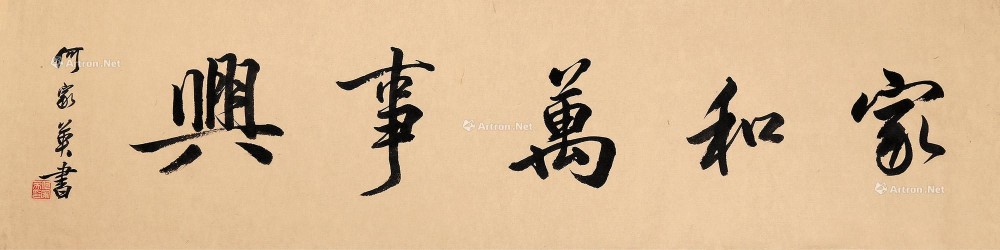 家和萬事興
何家英書
Artron.Net
Artron.Net
Artron.Net